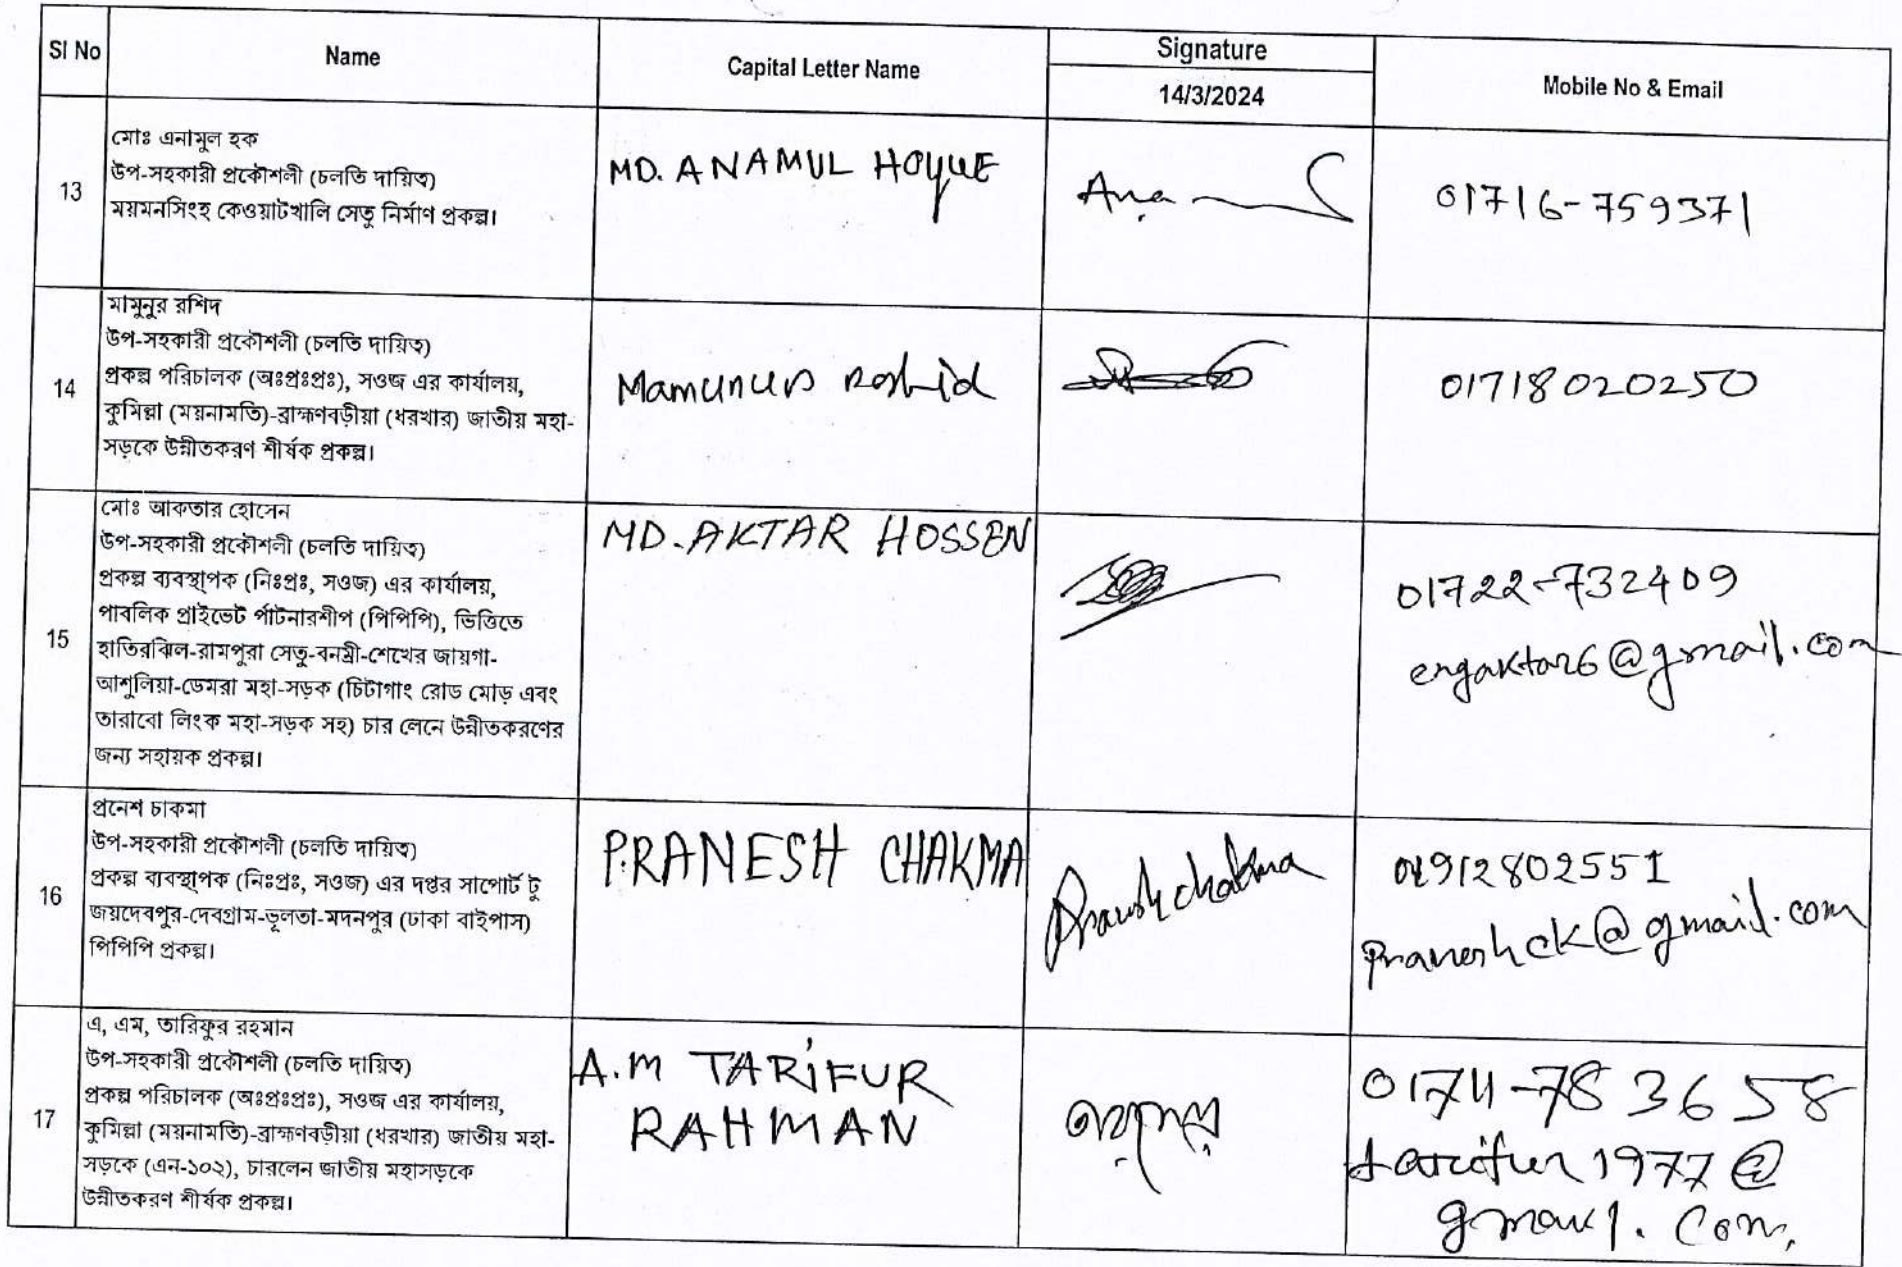 Sl No
Name
Capital Letter Name
Signature
14/3/2024
Mobile No & Email
13
মোঃ এনামুল হক
উপ-সহকারী প্রকৌশলী (চলতি দায়িত্ব)
ময়মনসিংহ কেওয়াটখালি সেতু নির্মাণ প্রকল্প।
MD. ANAMUL HOQUE
01716-759371
14
মামুনুর রশিদ
উপ-সহকারী প্রকৌশলী (চলতি দায়িত্ব)
প্রকল্প পরিচালক (অঃপ্রঃপ্রঃ), সওজ এর কার্যালয়,
কুমিল্লা (ময়নামতি)-ব্রাহ্মণবড়ীয়া (ধরখার) জাতীয় মহা-
সড়কে উন্নীতকরণ শীর্ষক প্রকল্প।
Mamunur Roshid
01718020250
15
মোঃ আকতার হোসেন
উপ-সহকারী প্রকৌশলী (চলতি দায়িত্ব)
প্রকল্প ব্যবস্থাপক (নিঃপ্রঃ, সওজ) এর কার্যালয়,
পাবলিক প্রাইভেট র্পাটনারশীপ (পিপিপি), ভিত্তিতে
হাতিরঝিল-রামপুরা সেতু-বনশ্রী-শেখের জায়গা-
আশুলিয়া-ডেমরা মহা-সড়ক (চিটাগাং রোড মোড় এবং
তারাবো লিংক মহা-সড়ক সহ) চার লেনে উন্নীতকরণের
জন্য সহায়ক প্রকল্প।
MD. AKTAR HOSSEN
01722-732409
engaktar6@gmail.com
16
প্রনেশ চাকমা
উপ-সহকারী প্রকৌশলী (চলতি দায়িত্ব)
প্রকল্প ব্যবস্থাপক (নিঃপ্রঃ, সওজ) এর দপ্তর সাপোর্ট টু
জয়দেবপুর-দেবগ্রাম-ভূলতা-মদনপুর (ঢাকা বাইপাস)
পিপিপি প্রকল্প।
PRANESH CHAKMA
Pranesh chakma
01912802551
Praneshck@gmail.com
17
এ, এম, তারিফুর রহমান
উপ-সহকারী প্রকৌশলী (চলতি দায়িত্ব)
প্রকল্প পরিচালক (অঃপ্রঃপ্রঃ), সওজ এর কার্যালয়,
কুমিল্লা (ময়নামতি)-ব্রাহ্মণবড়ীয়া (ধরখার) জাতীয় মহা-
সড়কে (এন-১০২), চারলেন জাতীয় মহাসড়কে
উন্নীতকরণ শীর্ষক প্রকল্প।
A.M TARIFUR
RAHMAN
tarifur1977@
gmail.com,